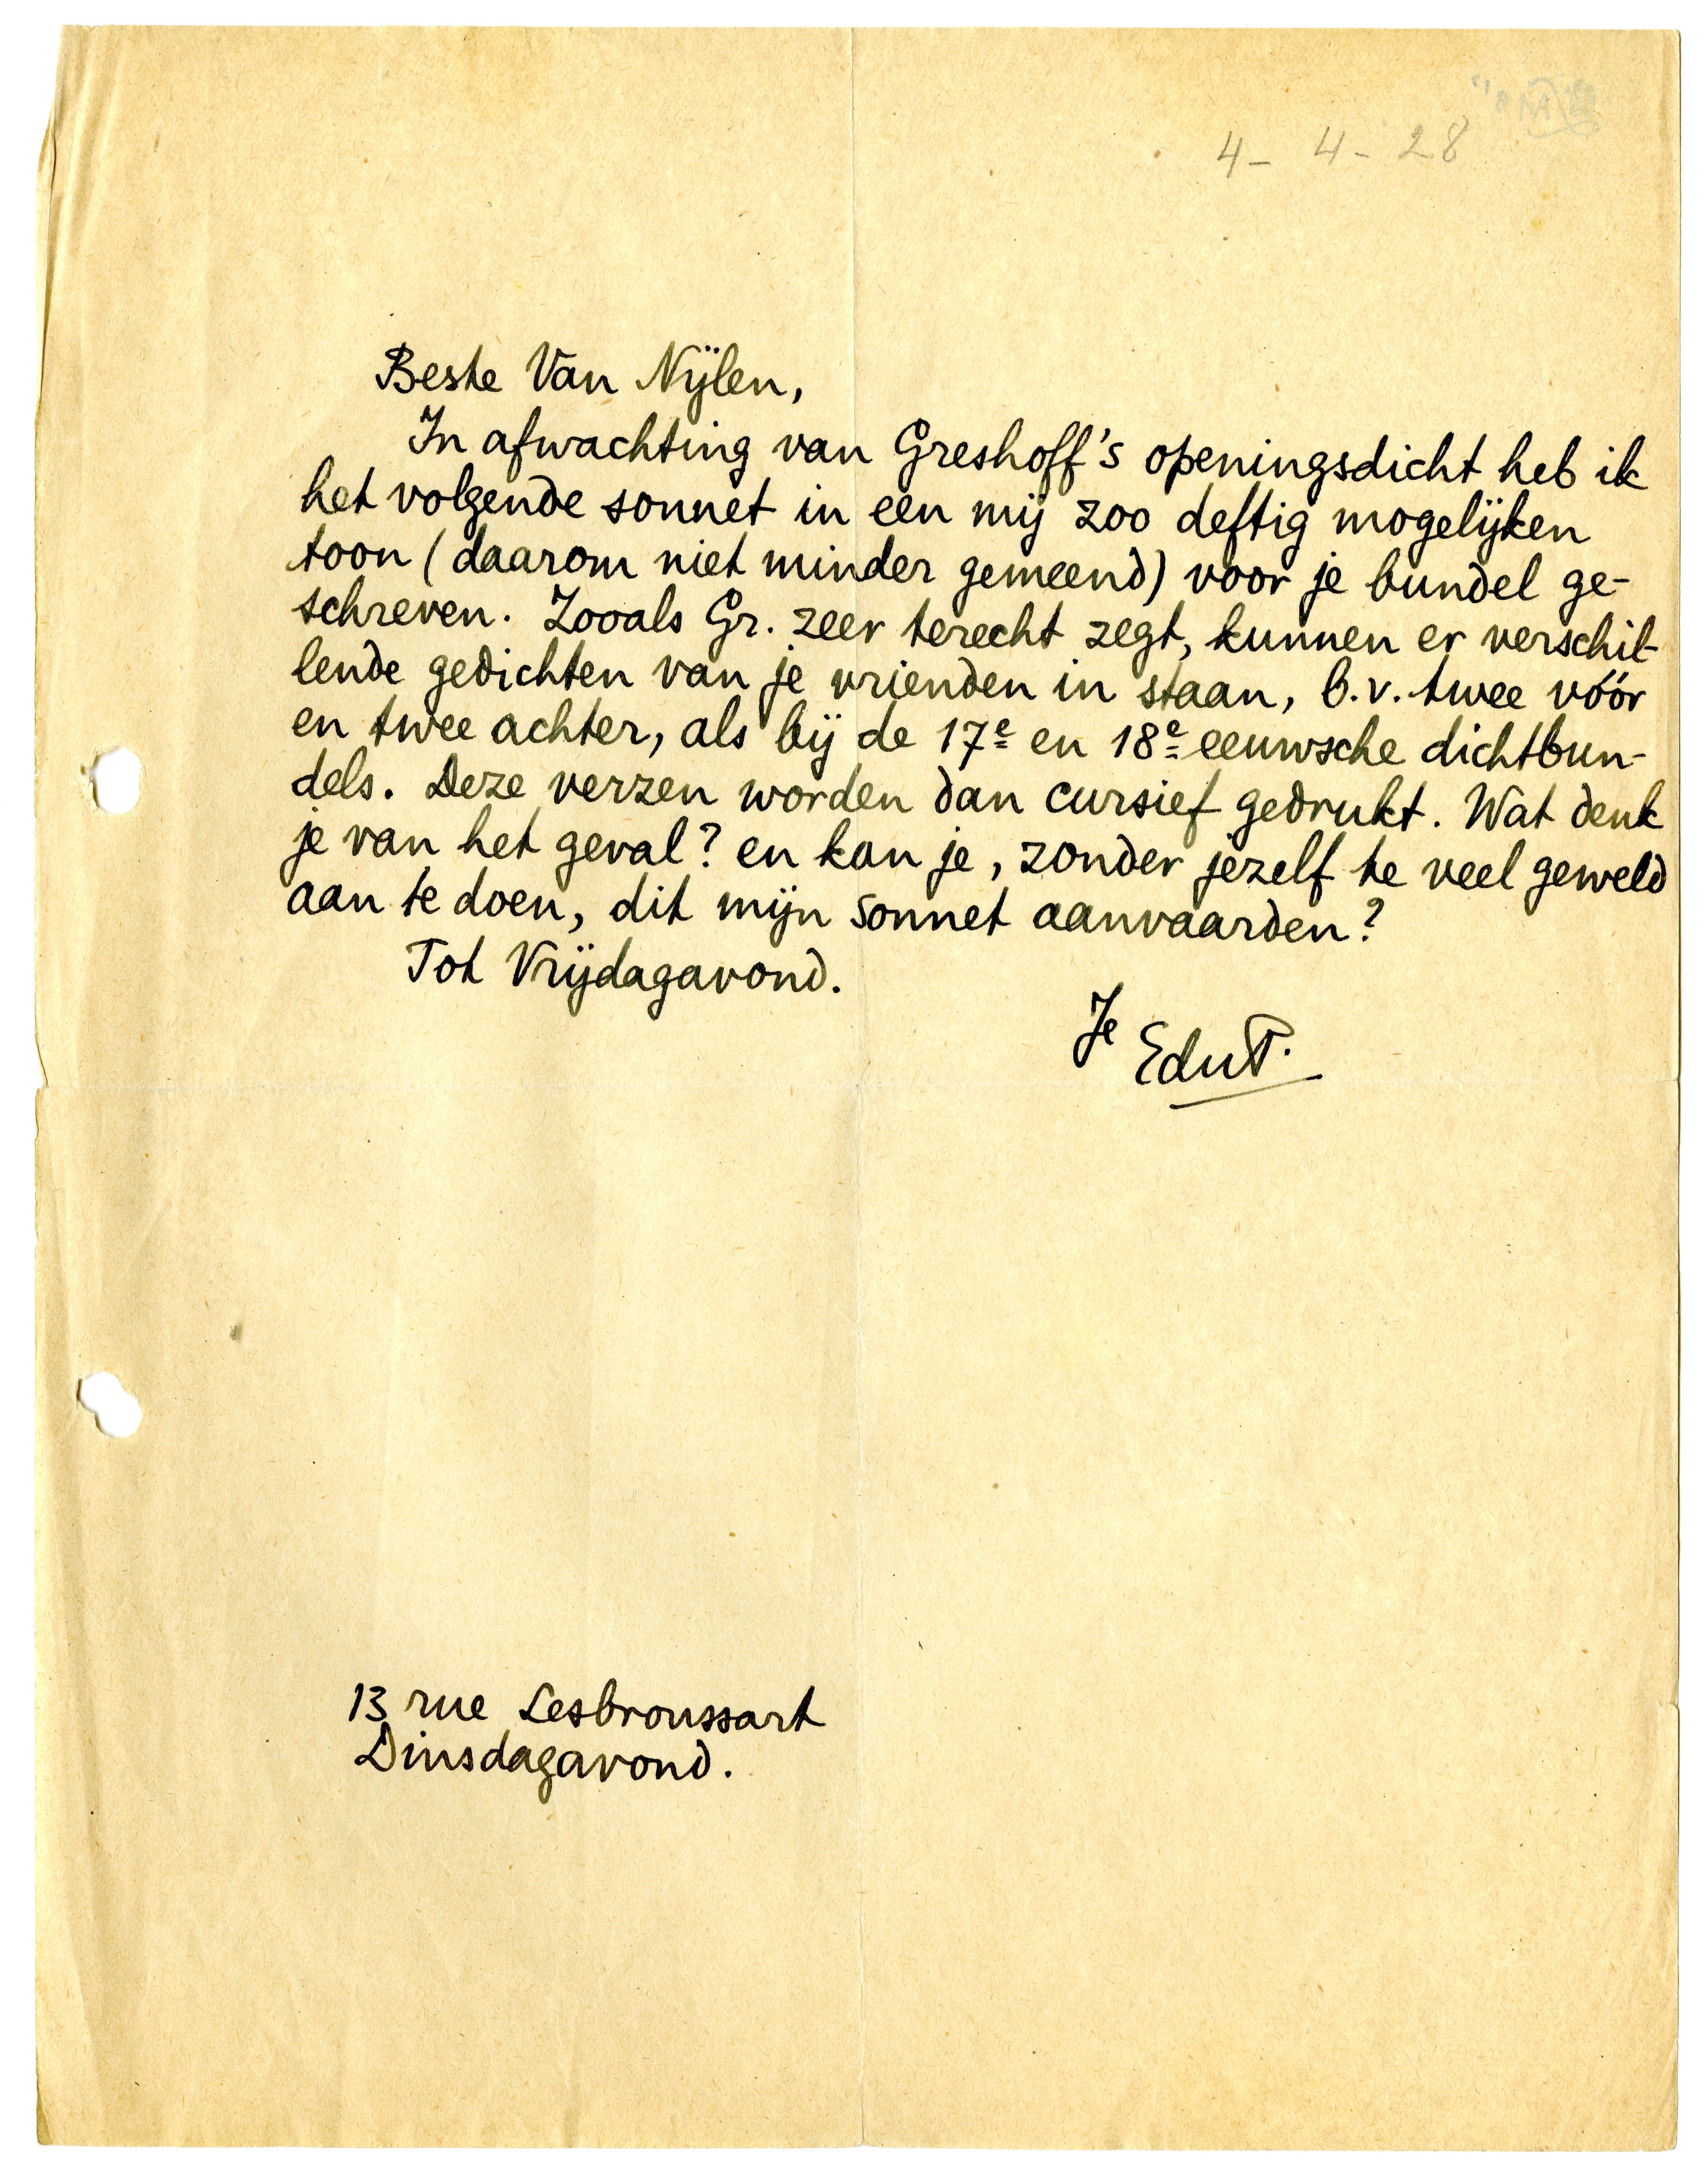 4- 4- 28
Beste Van Nijlen,
In afwachting van Greshoff's openingsdicht heb ik
het volgende sonnet in een mij zoo deftig mogelijken
toon (daarom niet minder gemeend) voor je bundel ge-
schreven. Zooals Gr. zeer terecht zegt, kunnen er verschil-
lende gedichten van je vrienden in staan, b.v. twee vóór
en twee achter, als bij de 17e en 18e eeuwsche dichtbun-
dels. Deze verzen worden dan cursief gedrukt. Wat denk
je van het geval? en kan je, zonder jezelf te veel geweld
aan te doen, dit mijn sonnet aanvaarden?
Tot Vrijdagavond.
Je
EduP.
13 rue Lesbroussart
Dinsdagavond.